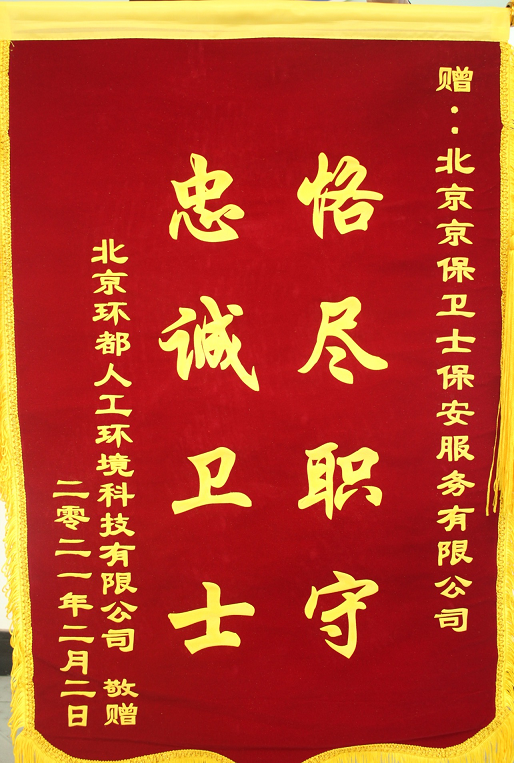 赠：北京京保卫士保安服务有限公司
恪尽职守
忠诚卫士
北京环都人工环境科技有限公司 敬赠
二零二一年二月二日